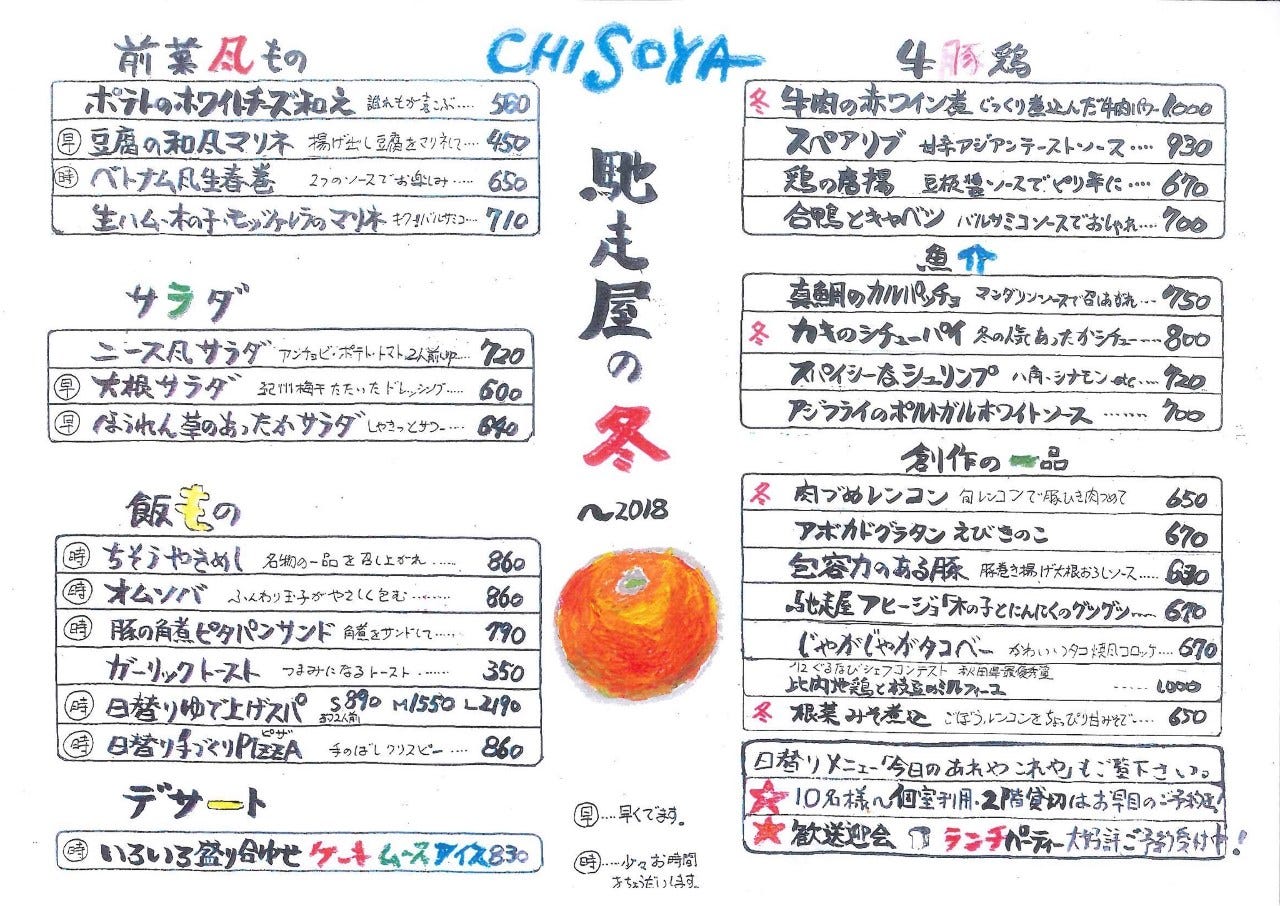 CHISOYA
馳走屋の冬
〜2018
前菜風もの
ポテトのホワイトチーズ和え 誰れもが喜こぶ…… 560
早 豆腐の和風マリネ 揚げ出し豆腐をマリネして…… 450
時 ベトナム風生春巻 2つのソースでお楽しみ…… 650
生ハム・木の子・モッツァレラのマリネ バルサミコ… 710
サラダ
ニース風サラダ アンチョビ・ポテト・トマト 2人前 720
早 大根サラダ 紀州梅干たたいたドレッシング…… 600
早 ほうれん草のあったかサラダ しゃきっとサワー…… 640
飯もの
時 ちそうやきめし 名物の一品を召し上がれ…… 860
時 オムソバ ふんわり玉子がやさしく包む…… 860
時 豚の角煮ピタパンサンド 角煮をサンドして…… 790
ガーリックトースト つまみになるトースト…… 350
時 日替りゆで上げスパ S890 約2人前 M1550 L2190
時 日替り手づくりPIZZA ピザ 手のばしクリスピー…… 860
デザート
時 いろいろ盛り合わせ ケーキ ムース アイス 830
早……早くでます。
時……少々お時間
ちょうだいします。
牛豚鶏
冬 牛肉の赤ワイン煮 じっくり煮込んだ牛肉パワー 1000
スペアリブ 甘辛アジアンテーストソース…… 930
鶏の唐揚 豆板醤ソースでピリ辛に…… 670
合鴨とキャベツ バルサミコソースでおしゃれ… 700
魚介
真鯛のカルパッチョ マンダリンソースで召しあがれ… 750
冬 カキのシチューパイ 冬の人気あったかシチュー… 800
スパイシー春シュリンプ 八角、シナモン etc… 720
アジフライのポルトガルホワイトソース …… 700
創作の一品
冬 肉づめレンコン 旬レンコンで豚ひき肉つめて 650
アボカドグラタン えびきのこ 670
包容力のある豚 豚巻き揚げ大根おろしソース…… 630
馳走屋アヒージョ「木の子とにんにくのグツグツ…… 670
じゃがじゃがタコベー かわいいタコ焼風コロッケ…… 670
'12 ぐるなびシェフコンテスト 秋田県最優秀賞
比内地鶏と枝豆のミルフィーユ …… 1000
冬 根菜みそ煮込 ごぼう、レンコンをちょっぴり甘みそで… 650
日替りメニュー「今日のあれやこれや」もご覧下さい。
★10名様〜個室利用・2階貸切はお早目のご予約を!
★歓送迎会 ランチパーティー大好評ご予約受付中!